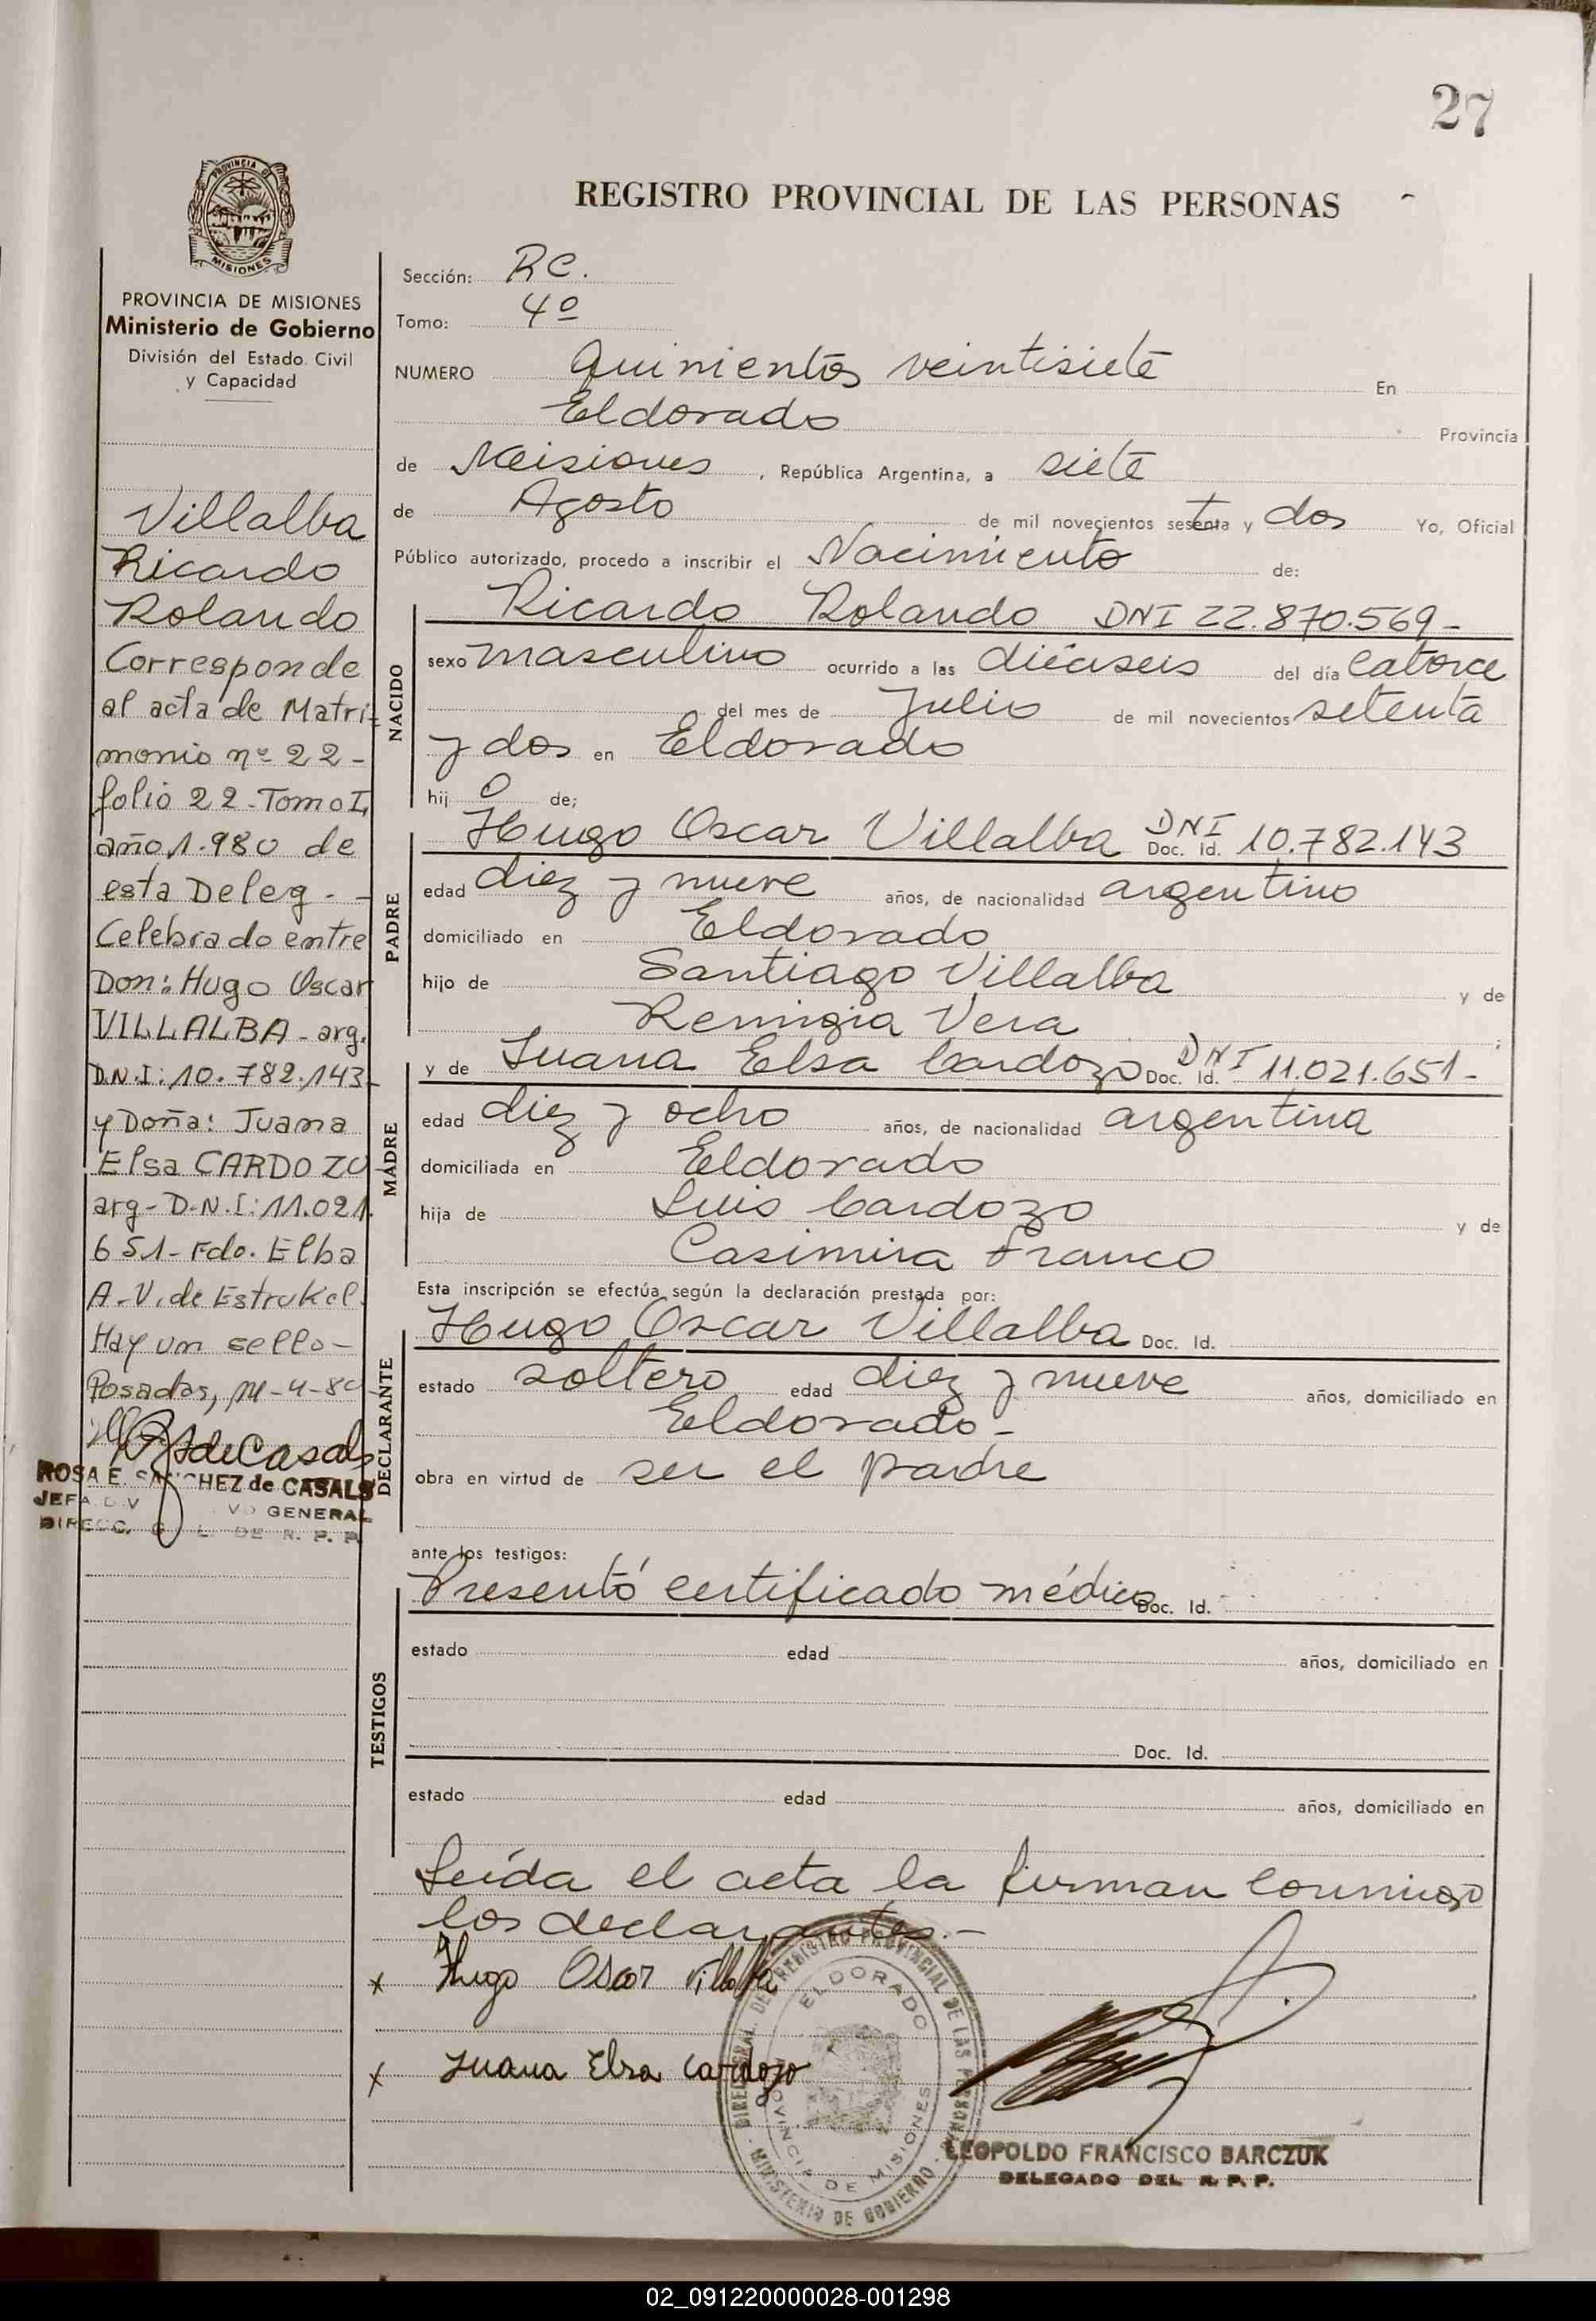 27
PROVINCIA DE
MISIONES
PROVINCIA DE MISIONES
Ministerio de Gobierno
División del Estado Civil
y Capacidad
Villalba
Ricardo
Rolando
Corresponde
al acta de Matri-
monio nº 22-
folio 22-Tomo I,
año 1.980 de
esta Deleg. -
Celebrado entre
Don: Hugo Oscar
VILLALBA - arg.
D.N.I: 10.782.143-
y Doña: Juana
Elsa CARDOZO
arg- D.N.I: 11.021.
651- Fdo. Elba
A.V. de Estrukel.
Hay un sello-
Posadas,
ROSA E. SANCHEZ de CASALS
GENERAL
DE R. P. P.
REGISTRO PROVINCIAL DE LAS PERSONAS
Sección: RC.
Tomo: 4º
NUMERO Quinientos veintisiete En
Eldorado Provincia
de Misiones, República Argentina, a siete
de Agosto de mil novecientos setenta y dos Yo, Oficial
Público autorizado, procedo a inscribir el Nacimiento de:
NACIDO
Ricardo Rolando DNI 22.870.569-
sexo masculino ocurrido a las dieciseis del día Catorce
del mes de Julio de mil novecientos setenta
y dos en Eldorado
hij o de;
PADRE
Hugo Oscar Villalba DNI Doc. Id. 10.782.143
edad diez y nueve años, de nacionalidad argentino
domiciliado en Eldorado
hijo de Santiago Villalba y de
Remigia Vera
MADRE
y de Juana Elsa Cardozo DNI Doc. Id. 11.021.651-
edad diez y ocho años, de nacionalidad argentina
domiciliada en Eldorado
hija de Luis Cardozo y de
Casimira Franco
Esta inscripción se efectúa según la declaración prestada por:
DECLARANTE
Hugo Oscar Villalba Doc. Id.
estado soltero edad diez y nueve años, domiciliado en
Eldorado-
obra en virtud de ser el padre
ante los testigos:
TESTIGOS
Presentó certificado médico Doc. Id.
estado edad años, domiciliado en
Doc. Id.
estado edad años, domiciliado en
Leída el acta la firman conmigo
los declarantes.-
x Hugo Oscar Villalba
x Juana Elsa Cardozo
DIREC. GRAL. DEL REGISTRO PROVINCIAL DE LAS PERSONAS
ELDORADO
PROVINCIA DE MISIONES
MINISTERIO DE GOBIERNO
LEOPOLDO FRANCISCO BARCZUK
DELEGADO DEL R. P. P.
02_091220000028-001298